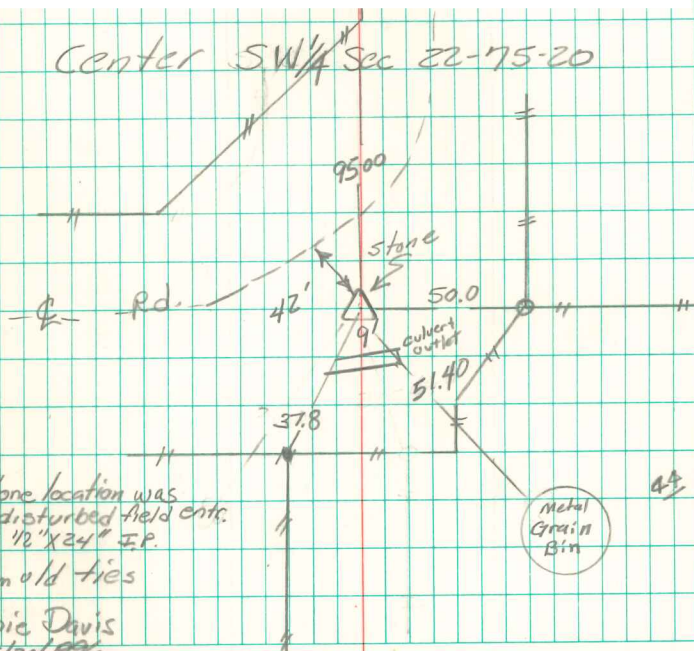 Center SW 1/4 Sec 22-75-20
95.00
stone
¢ Rd.
42'
50.0
9'
culvert
outlet
51.40
37.8
44
Metal
Grain
Bin
one location was
disturbed field entr.
1/2" X 24" I.P.
old ties
Davis